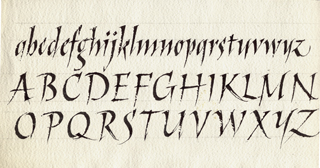 abcdefghijklmnopqrstuvwxyz
ABCDEFGHIKLMN
OPQRSTUVWXYZ